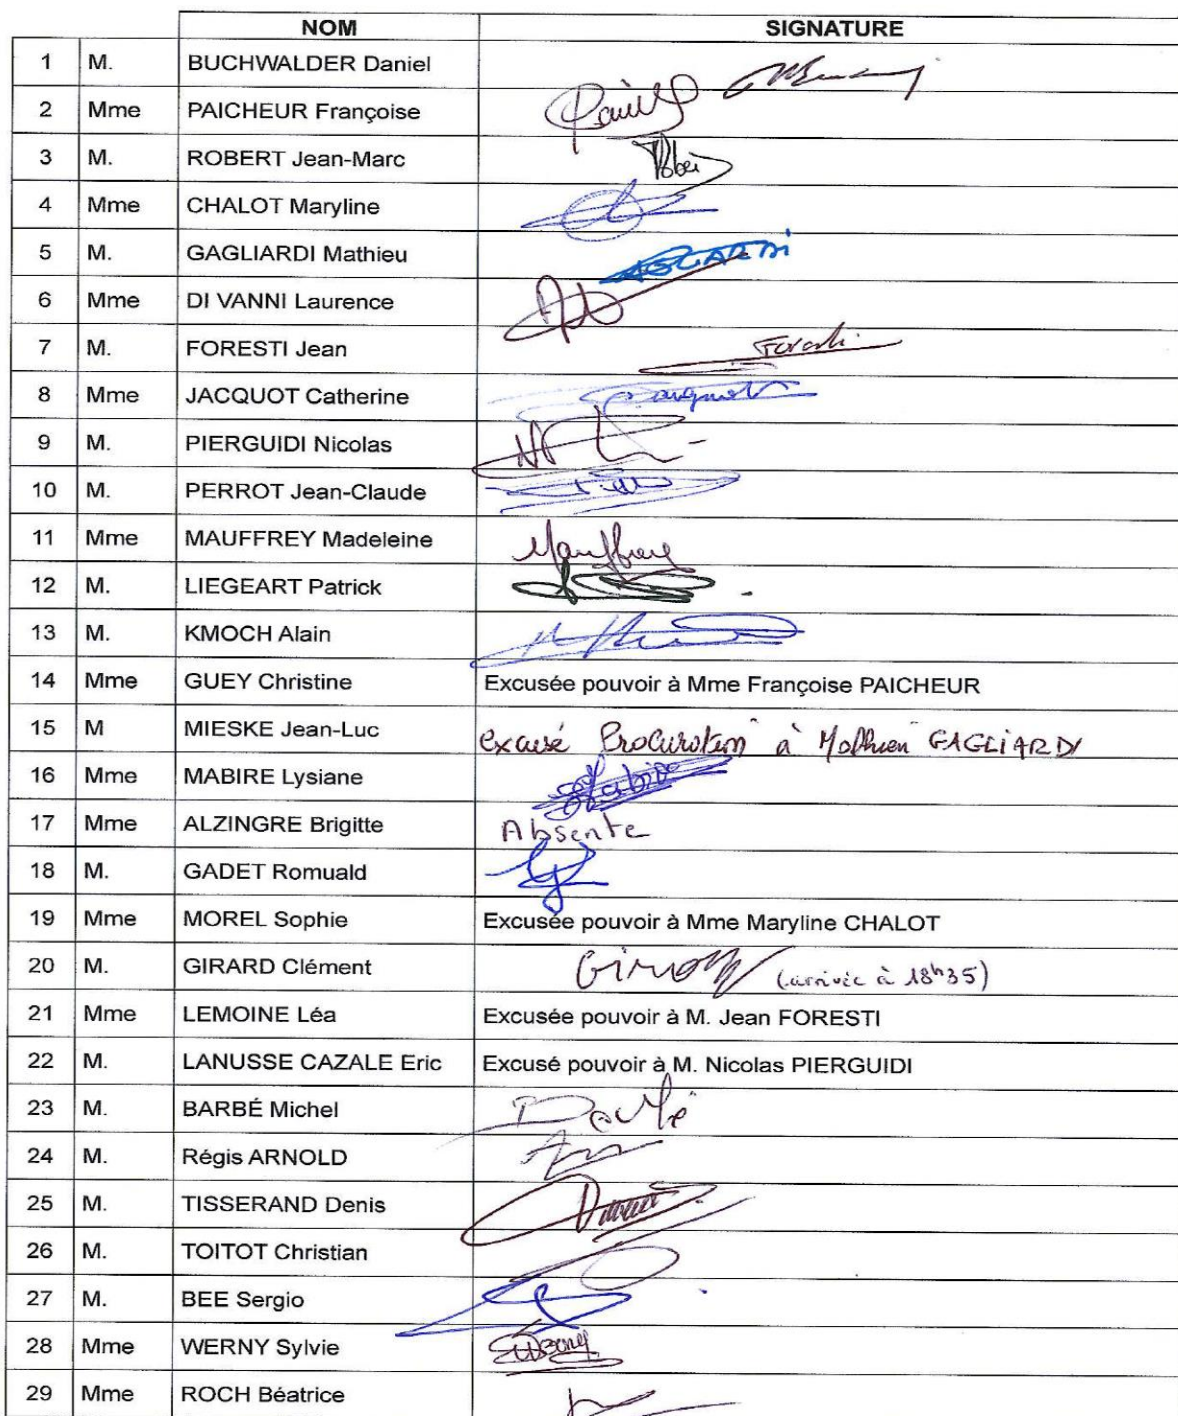 NOM SIGNATURE
1 M. BUCHWALDER Daniel
2 Mme PAICHEUR Françoise
3 M. ROBERT Jean-Marc
4 Mme CHALOT Maryline
5 M. GAGLIARDI Mathieu
6 Mme DI VANNI Laurence
7 M. FORESTI Jean Foresti
8 Mme JACQUOT Catherine Jacquot
9 M. PIERGUIDI Nicolas
10 M. PERROT Jean-Claude
11 Mme MAUFFREY Madeleine Mauffrey
12 M. LIEGEART Patrick
13 M. KMOCH Alain
14 Mme GUEY Christine Excusée pouvoir à Mme Françoise PAICHEUR
15 M MIESKE Jean-Luc excusé Procuration à Mathieu GAGLIARDI
16 Mme MABIRE Lysiane Mabire
17 Mme ALZINGRE Brigitte Absente
18 M. GADET Romuald
19 Mme MOREL Sophie Excusée pouvoir à Mme Maryline CHALOT
20 M. GIRARD Clément (arrivée à 18h35)
21 Mme LEMOINE Léa Excusée pouvoir à M. Jean FORESTI
22 M. LANUSSE CAZALE Eric Excusé pouvoir à M. Nicolas PIERGUIDI
23 M. BARBÉ Michel Barbé
24 M. Régis ARNOLD
25 M. TISSERAND Denis
26 M. TOITOT Christian
27 M. BEE Sergio
28 Mme WERNY Sylvie
29 Mme ROCH Béatrice